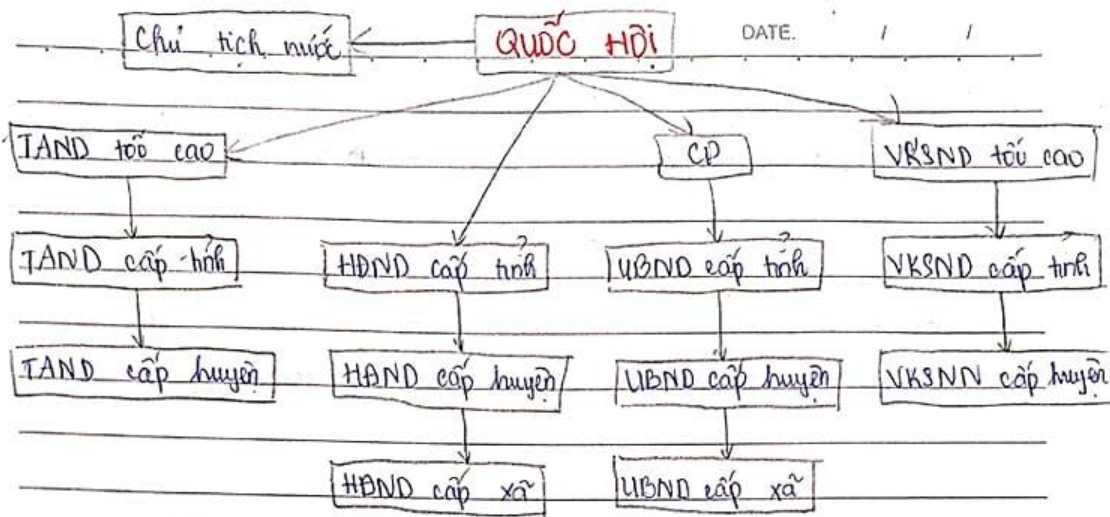 Chủ tịch nước QUỐC HỘI DATE. / /
TAND tối cao CP VKSND tối cao
TAND cấp tỉnh HĐND cấp tỉnh UBND cấp tỉnh VKSND cấp tỉnh
TAND cấp huyện HĐND cấp huyện UBND cấp huyện VKSNN cấp huyện
HĐND cấp xã UBND cấp xã